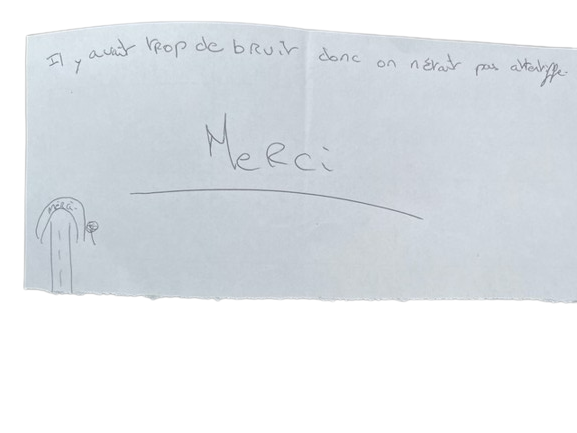 Il y avait trop de bruit donc on n'était pas attentif
Merci
Merci